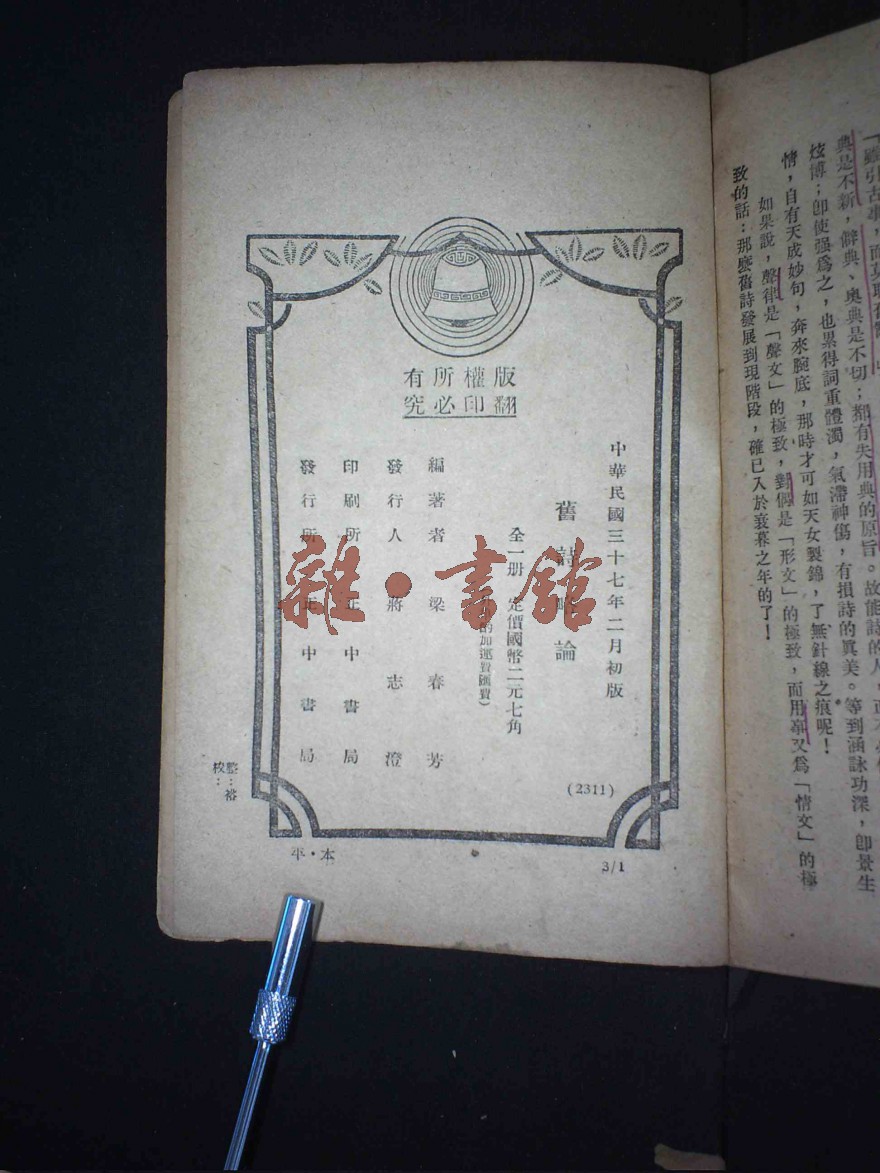 「雖引古事，而莫取舊
典是不新，僻典、奧典是不切；都有失用典的原旨。故能詩的人，
炫博；卽使强爲之，也累得詞重體濁，氣滯神傷，有損詩的眞美。等到涵詠功深，卽景生
情，自有天成妙句，奔來腕底，那時才可如天女製錦，了無針線之痕呢！
如果說，聲律是「聲文」的極致，對偶是「形文」的極致，而用事又爲「情文」的極
致的話：那麽舊詩發展到現階段，確已入於衰暮之年的了！
版權所有
翻印必究
中華民國三十七年二月初版
舊詩略論
全一册 定價國幣二元七角
加運費匯費）
編著者 梁春芳
發行人 蔣志澄
印刷所 正中書局
發行所 正中書局
(2311)
校：
裕
平・本
3/1
雜・書館